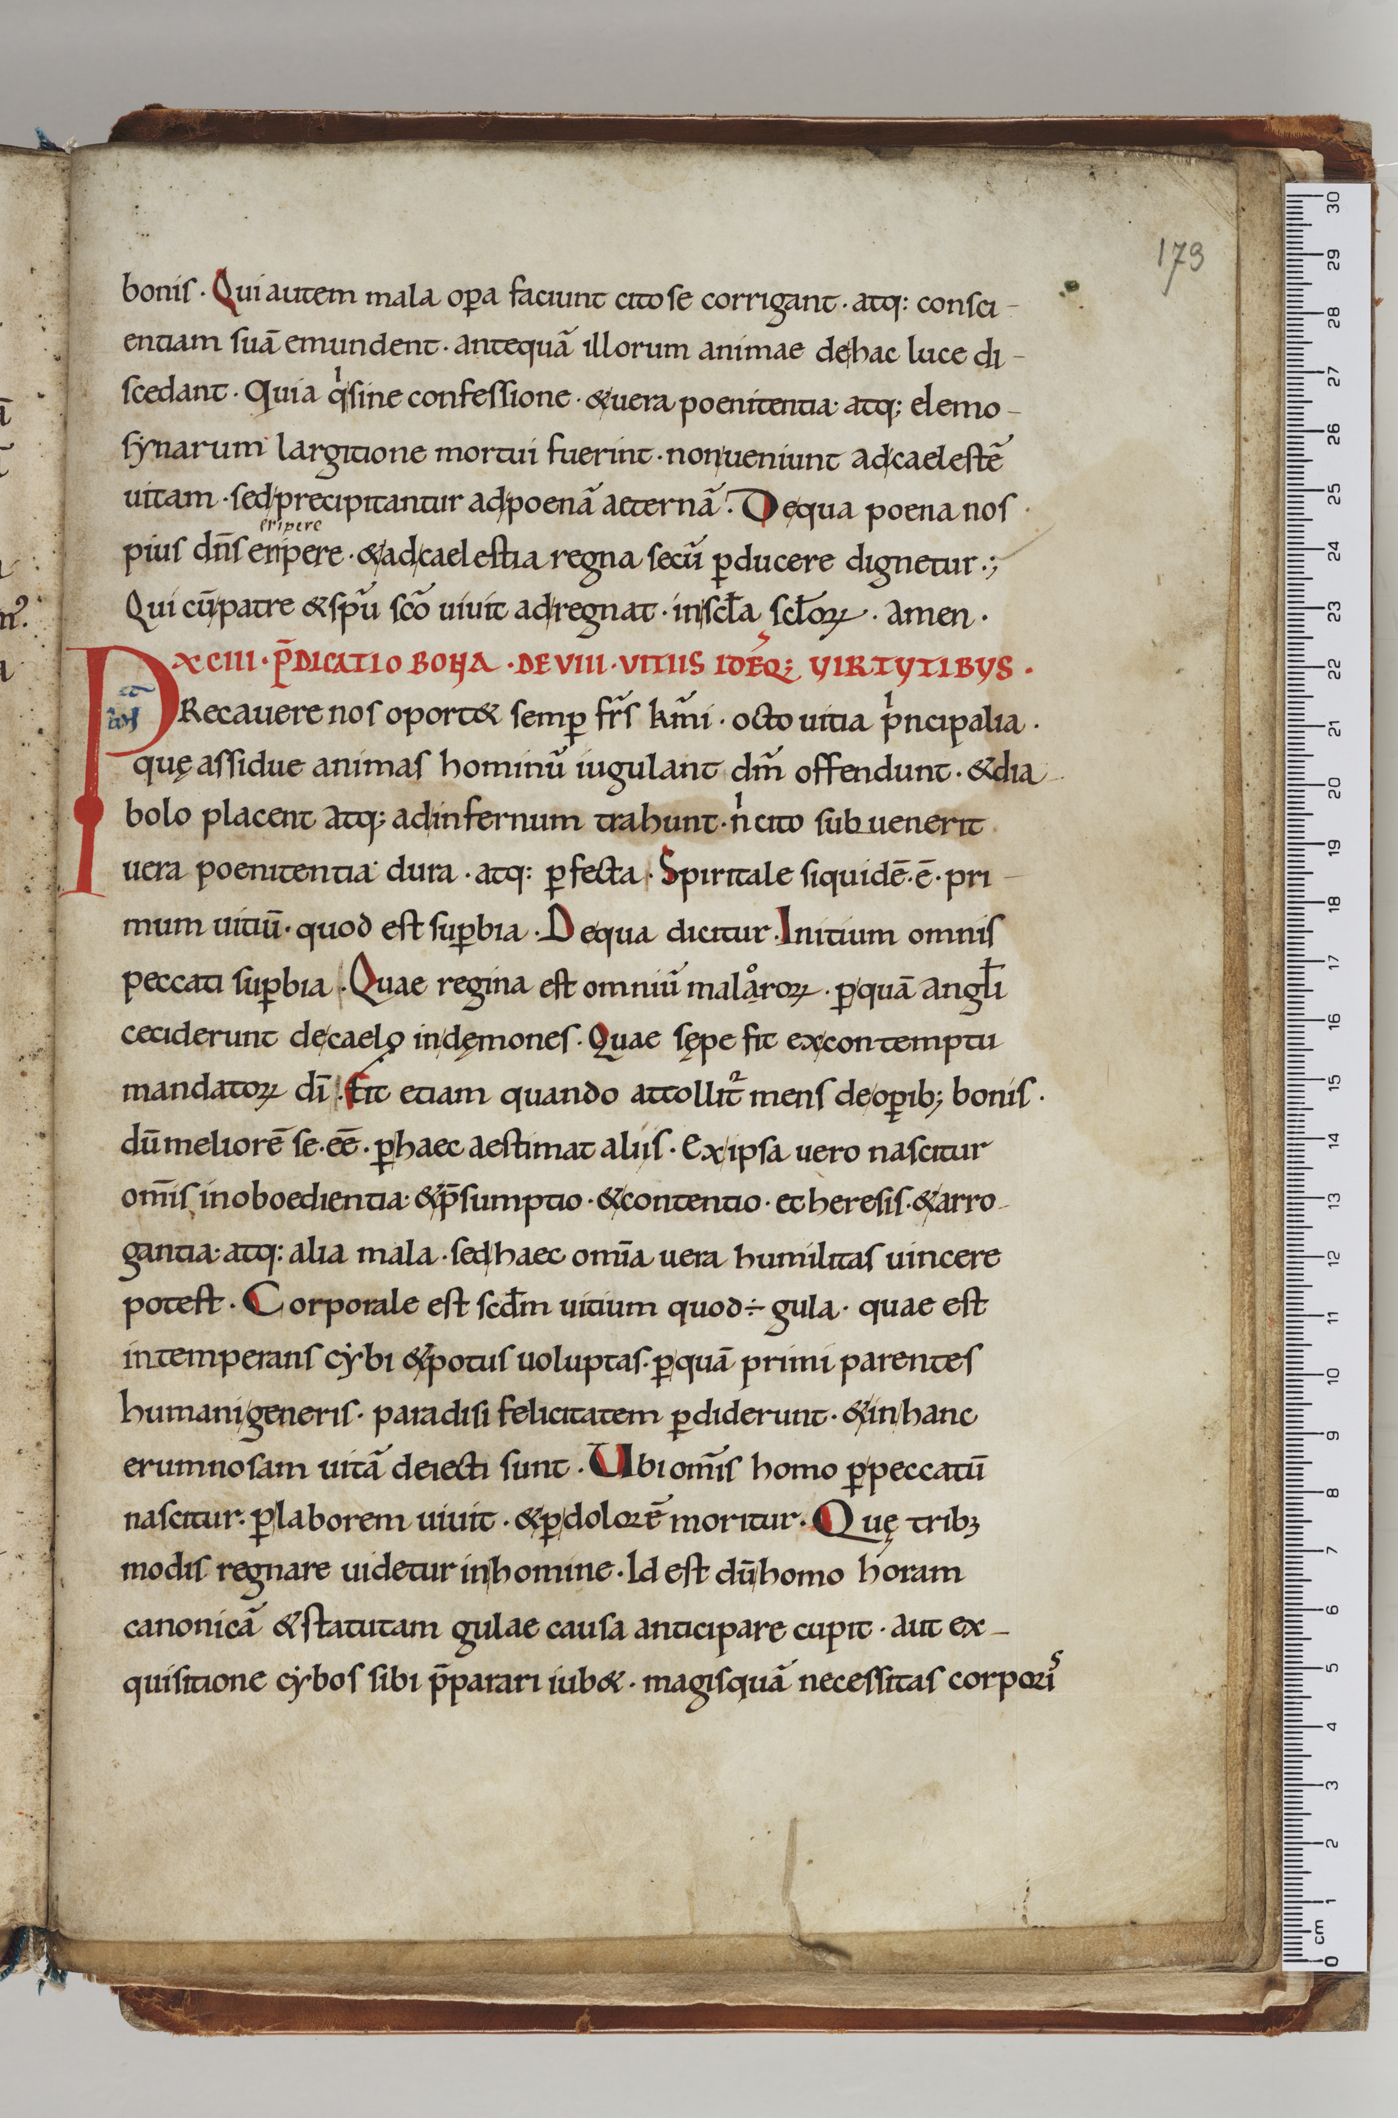 173
bonis · Qui autem mala oꝑa faciunt cito se corrigant · atq: consci-
entiam suā emundent · antequā illorum animae de hac luce di-
scedant · Quia qͥ sine confessione · & uera poenitentia · atq; elemo-
synarum largitione mortui fuerint · non ueniunt ad caelestē
uitam · sed precipitantur ad poenā aeternā · De qua poena nos
eripere
pius dn̄s eripere · & ad caelestia regna secū ꝑducere dignetur ·;
Qui cū patre & spū scō uivit ad regnat · in scła scłoꝝ · amen ·
XCIII · P̄DICATIO BONA · DE VIII · VITIIS IDĒQ; VIRTVTIBVS ·
PRecauere nos oport& semꝑ fr̄s km̄i · octo uitia pͥncipalia ·
quę assidue animas hominū iugulant dm̄ offendunt · & dia
bolo placent atq; ad infernum trahunt · nͥ cito subuenerit
uera poenitentia dura · atq: ꝑfecta · Spiritale siquidē · ē · pri-
mum uitiū · quod est suꝑbia · De qua dicitur · Initium omnis
peccati suꝑbia · Quae regina est omniū maloꝝ · ꝑ quā angłi
ceciderunt de caelo in dęmones · Quae sępe fit ex contemptu
mandatoꝝ dī · Fit etiam quando attollit᷑ mens de oꝑib; bonis ·
dū meliorē se · eē · ꝑ haec aestimat aliis · Ex ipsa uero nascitur
om̄is inoboedientia · & p̄sumptio · & contentio · et heresis · & arro-
gantia · atq: alia mala · sed haec om̄ia uera humilitas uincere
potest · Corporale est scd̄m uitium quod ÷ gula · quae est
intemperans cybi & potus uoluptas · ꝑ quā primi parentes
humani generis · paradisi felicitatem ꝑdiderunt · & in hanc
erumnosam uitā deiecti sunt · Ubi om̄is homo ꝑ peccatū
nascitur · ꝑ laborem uiuit · & ꝑ dolorē moritur · Quę trib;
modis regnare uidetur in homine · Id est dū homo horam
canonicā & statutam gulae causa anticipare cupit · aut ex-
quisitione cybos sibi p̄parari iub& · magis quā necessitas corporis